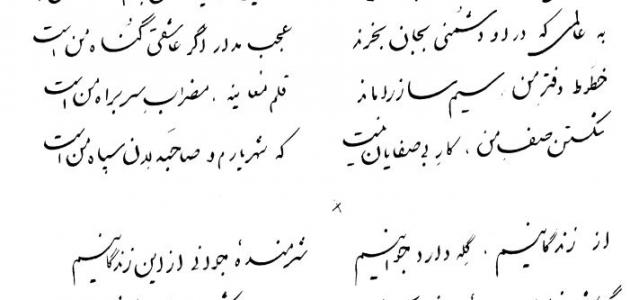 به عالمی که در او دشمنی بجان بخرند عجب مدار اگر عاشقی گناه من است
خطوط دفتر من، سیم ساز را ماند قلم معاینه، مضراب سر براه من است
شکستن صف من، کار بی صفایان نیست که شهریارم و صاحبدلان سپاه من است
از زندگانیم، گله دارد جوانیم شرمندهٔ جوانی از این زندگانیم